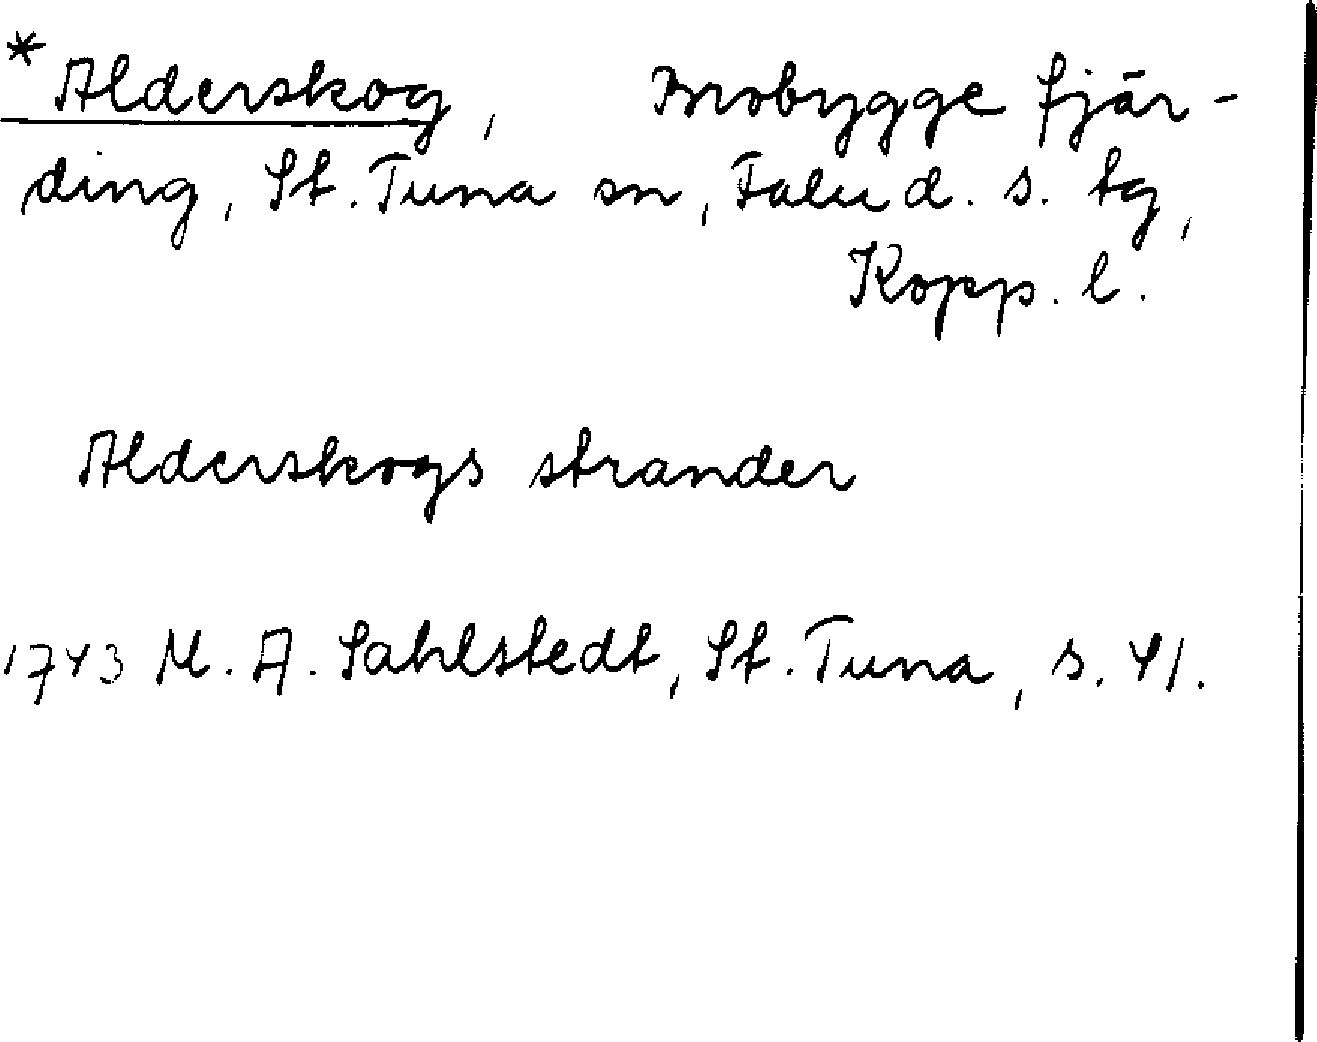 *Alderskog, Ovrobygge fjär-
ding, St. Tuna sn, Falu d. s. tg,
Kopp. l.
Alderskogs strander
1743 M. A. Sahlstedt, St. Tuna, s. 41.